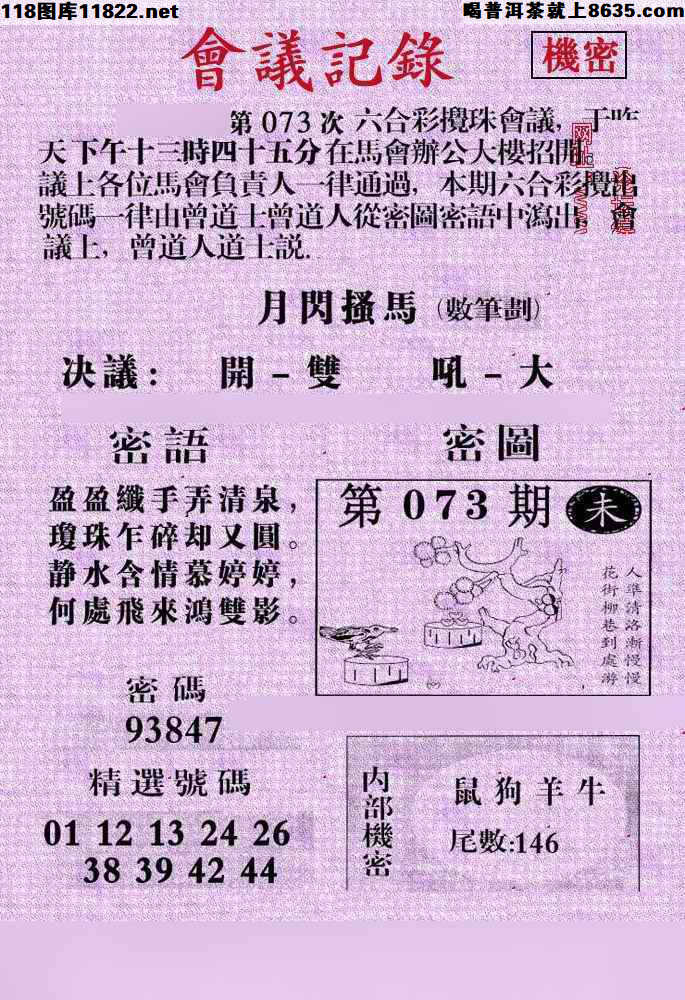 118图库11822.net
喝普洱茶就上8635.com
會議記錄
機密
第073次六合彩攪珠會議，于昨
天下午十三時四十五分在馬會辦公大樓招開
議上各位馬會負責人一律通過，本期六合彩攪出
號碼一律由曾道士曾道人從密圖密語中瀉出，會
議上，曾道人道士説.
网址
www
月閃搔馬（數筆劃）
决議：開－雙 吼－大
密語
盈盈纖手弄清泉，
瓊珠乍碎却又圓。
静水含情慕婷婷，
何處飛來鴻雙影。
密圖
第073期
未
人準清洛漸慢慢
花街柳巷到處游
密碼
93847
精選號碼
01 12 13 24 26
38 39 42 44
内部機密
鼠狗羊牛
尾數:146